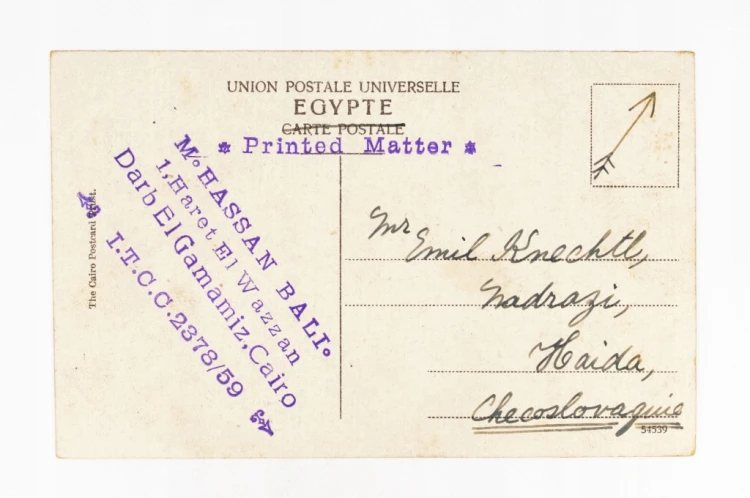 UNION POSTALE UNIVERSELLE
EGYPTE
CARTE POSTALE
* Printed Matter *
Mo HASSAN BALI.
1, Haret El Wazzan
Darb El Gamamiz, Cairo
I.T.C.C. 2378/59
The Cairo Postcard Trust.
Mr
Emil Knechtl,
Nadrazi,
Haida,
Checoslovaquie
54539